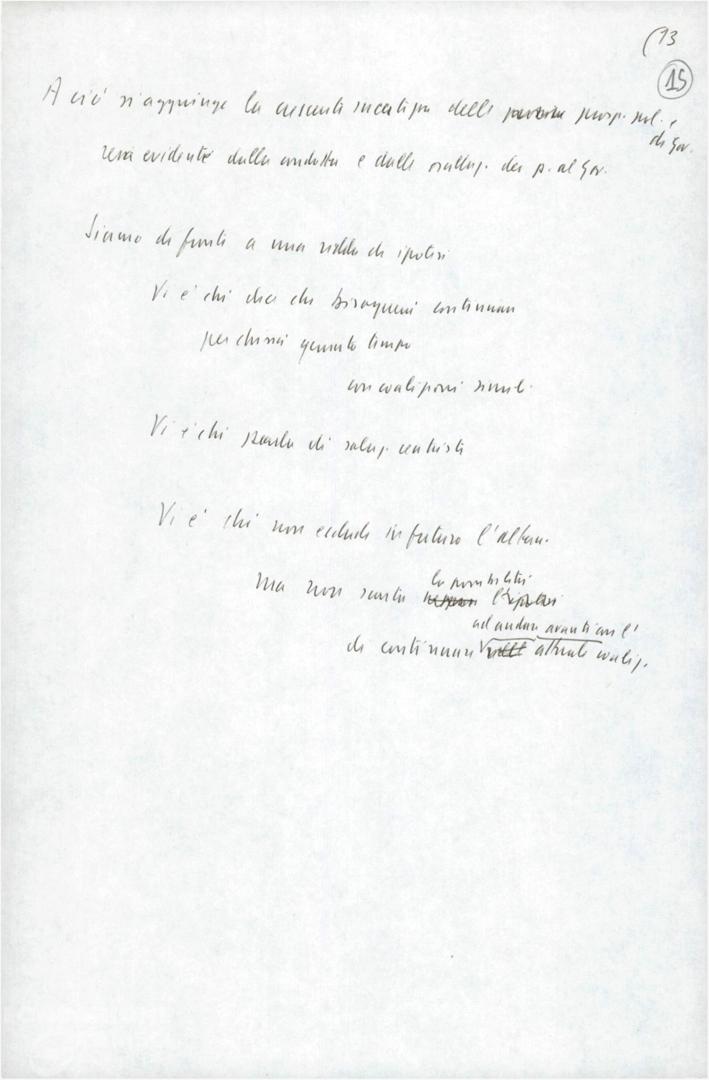 (13
15
A ciò si aggiunge la crescente incertezza delle prosp. pol. e
di Gov.
resa evidente dalla condotta e dalle p. al Gov.
Siamo di fronte a una ridda di ipotesi
Vi è chi dice che bisognerà continuare
per chissà quanto tempo
con coalizioni simil.
Vi è chi parla di soluz. centriste
Vi è chi non esclude in futuro l'altern.
ma non scarta la possibilità l'ipotesi
ad andare avanti con l'
di continuare attuale coaliz.